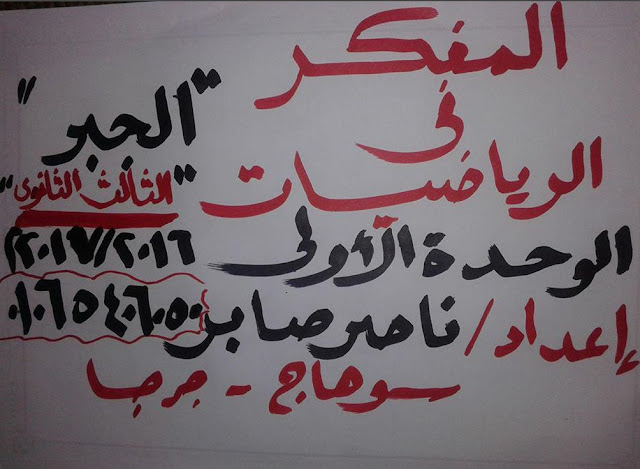 المفكر
فى
الرياضيات
"الجبر"
"الثالث الثانوى"
٢٠١٦/٢٠١٧م
الوحدة الأولى
إعداد/ ناصر صابر
٠١٠٦٥٤٠٦٠٥٠
سوهاج - جرجا